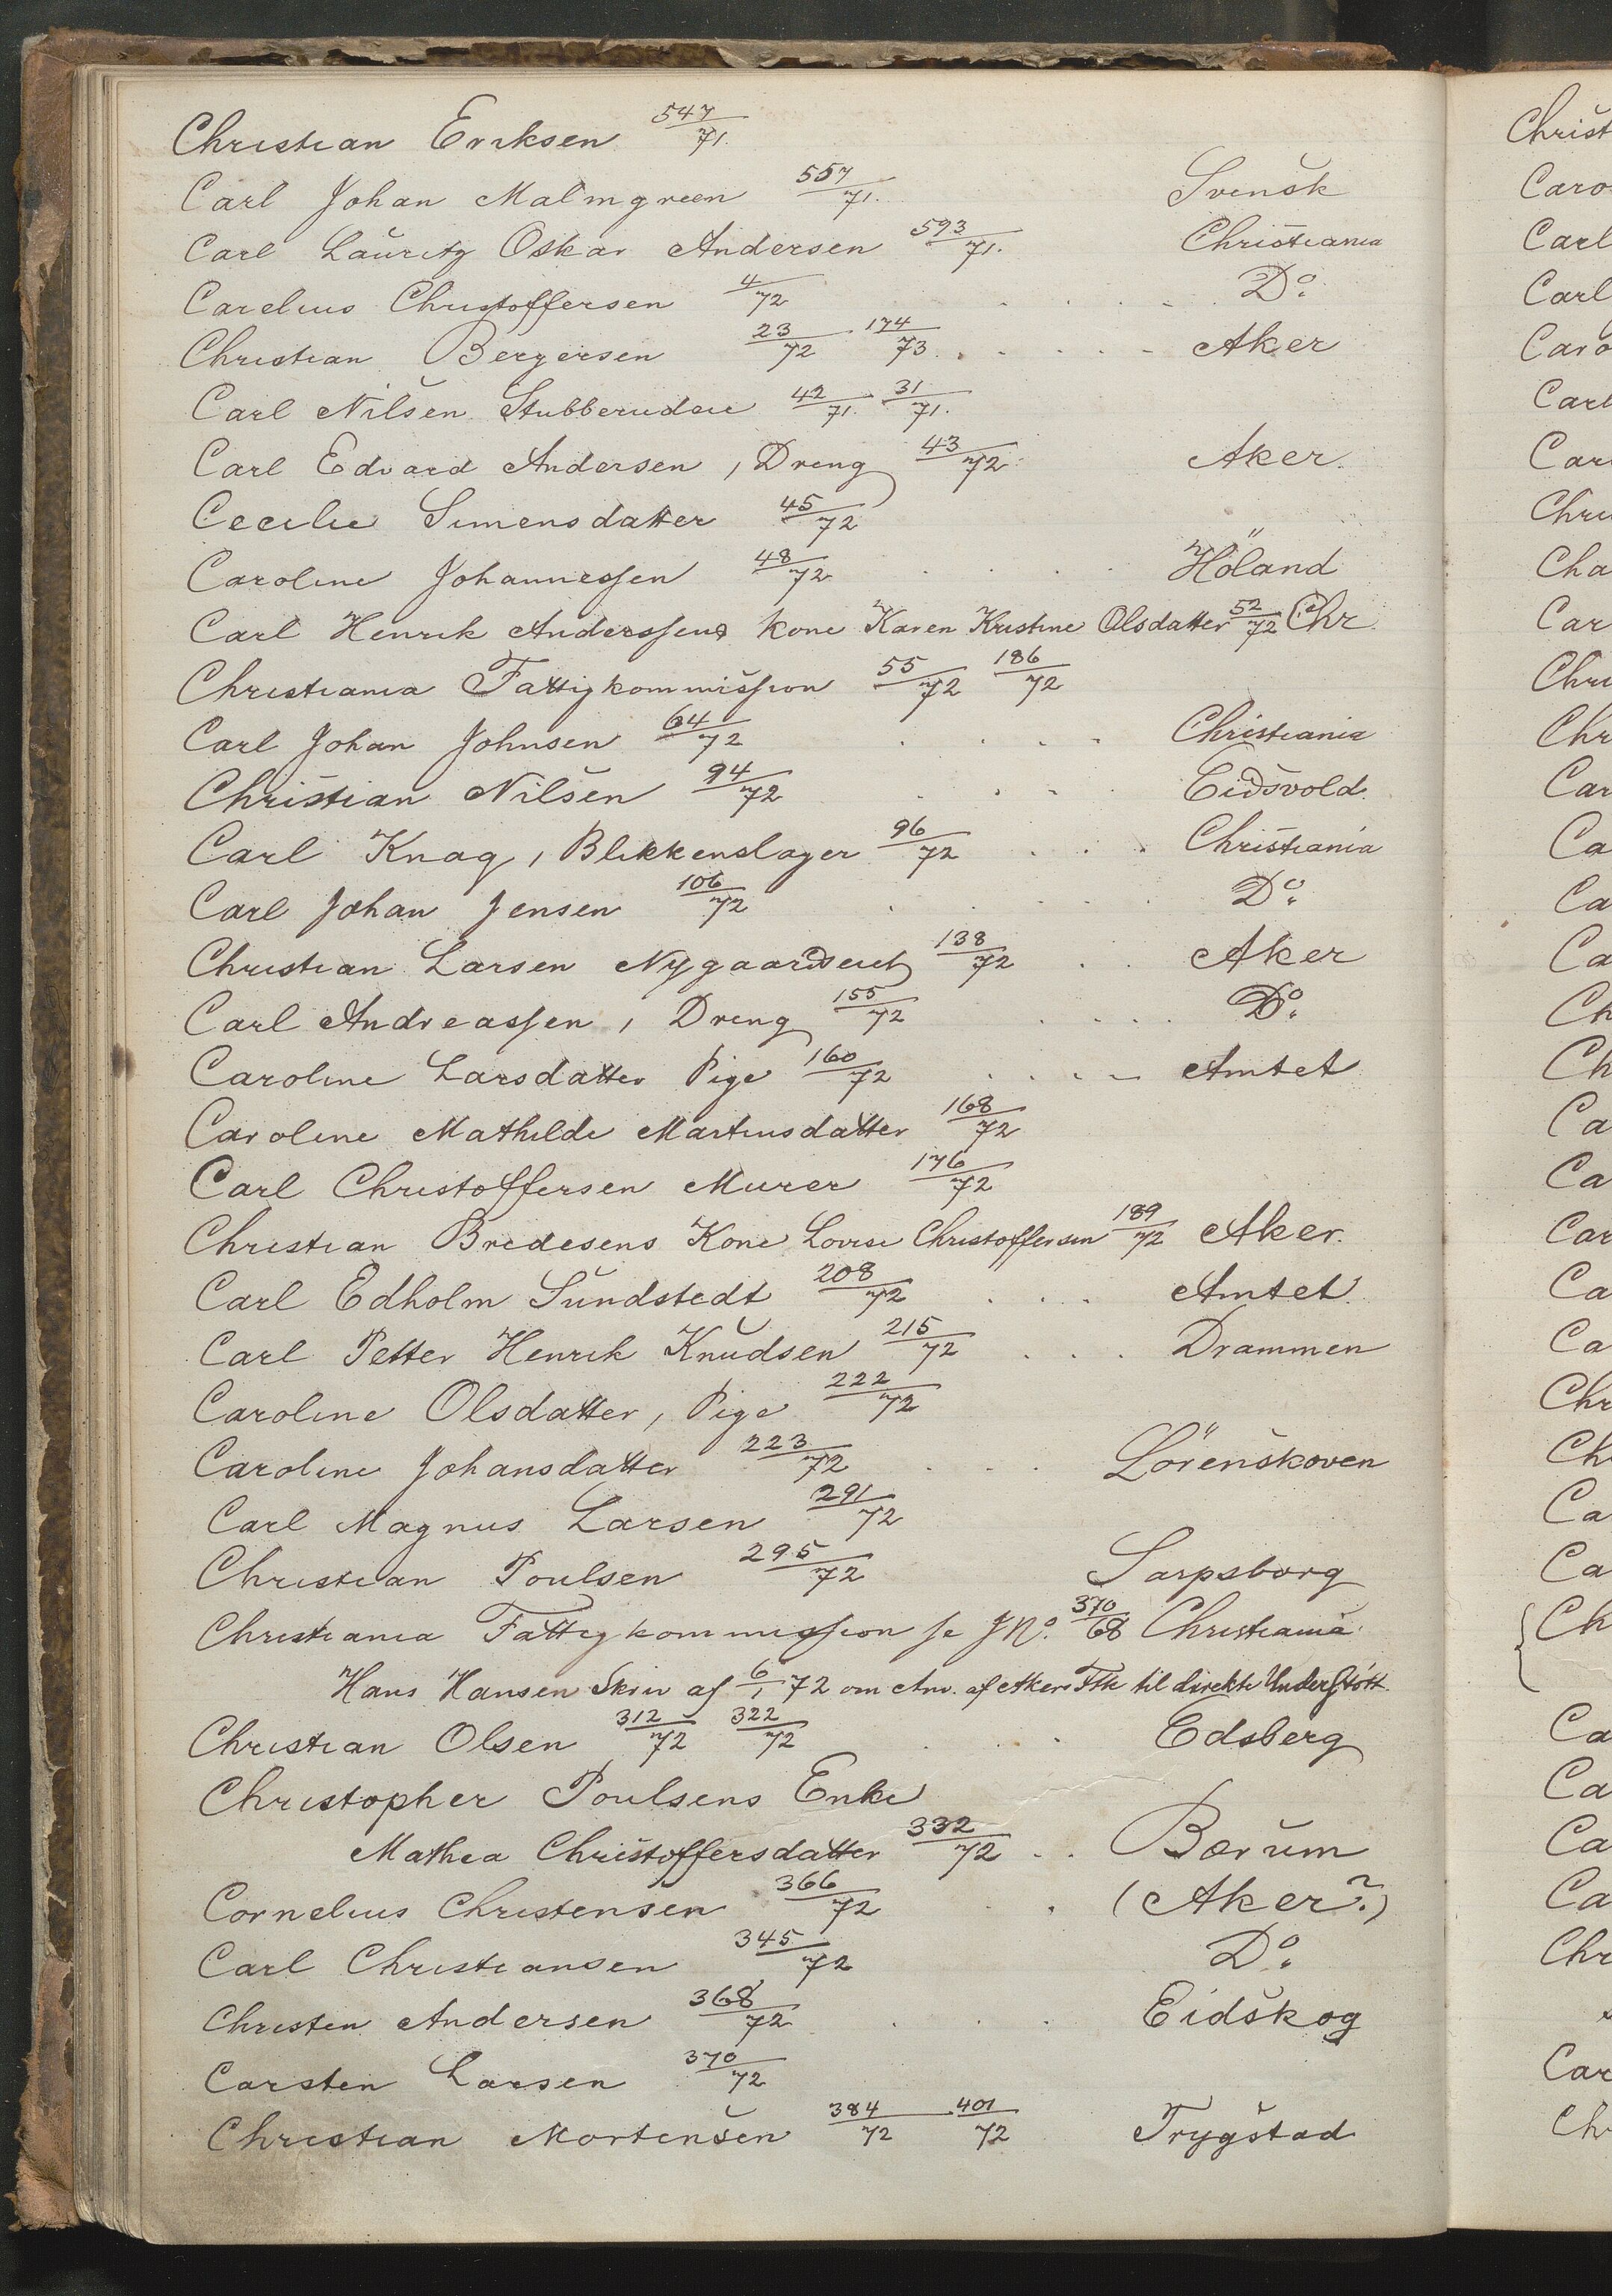 Christian Eriksen 547/71.
Carl Johan Malmgreen 557/71. Svensk
Carl Lauritz Oskar Andersen 593/71. Christiania
Carelius Christoffersen 4/72 . . . . Do.
Christian Bergersen 23/72 174/73 . . . . . Aker
Carl Nilsen Stubberudeie 42/71. 31/71.
Carl Edvard Andersen, Dreng 43/72. Aker.
Cecilie Simensdatter 45/72
Caroline Johannessen 48/72 . . . . Höland
Carl Henrik Anderssens kone Karen Kristine Olsdatter 52/72 Chr.
Christiania Fattigkommission 55/72 186/72
Carl Johan Johnsen 64/72 . . . . Christiania
Christian Nilsen 94/72 . . . . Eidsvold.
Carl Knag, Blikkenslager 96/72 . . . Christiania
Carl Johan Jensen 106/72 . . . . . Do.
Christian Larsen Nygaardseiet 138/72 . . Aker
Carl Andreassen, Dreng 155/72 . . . . Do.
Caroline Larsdatter Pige 160/72 . . . . Amtet
Caroline Mathilde Martinsdatter 168/72
Carl Christoffersen Murer 176/72
Christian Bredesens Kone Lovise Christoffersen 189/72 Aker.
Carl Edholm Sundstedt 208/72 . . . Amtet.
Carl Petter Henrik Knudsen 215/72 . . . Drammen
Caroline Olsdatter, Pige 222/72
Caroline Johansdatter 223/72 . . . Lörenskoven
Carl Magnus Larsen 291/72
Christian Poulsen 295/72 Sarpsborg
Christiania Fattigkommission se J No. 370/68 Christiania.
Hans Hansen Skriv af 6/1 72 om Anv. af Akers Ftk til direkte Understött.
Christian Olsen 312/72 322/72 . . . Edsberg
Christopher Poulsens Enke
Mathea Christoffersdatter 332/72 . . Bærum
Cornelius Christensen 366/72 . . (Aker?)
Carl Christiansen 345/72 Do.
Christen Andersen 368/72 . . . Eidskog
Carsten Larsen 370/72
Christian Mortensen 384/72 401/72 Trygstad